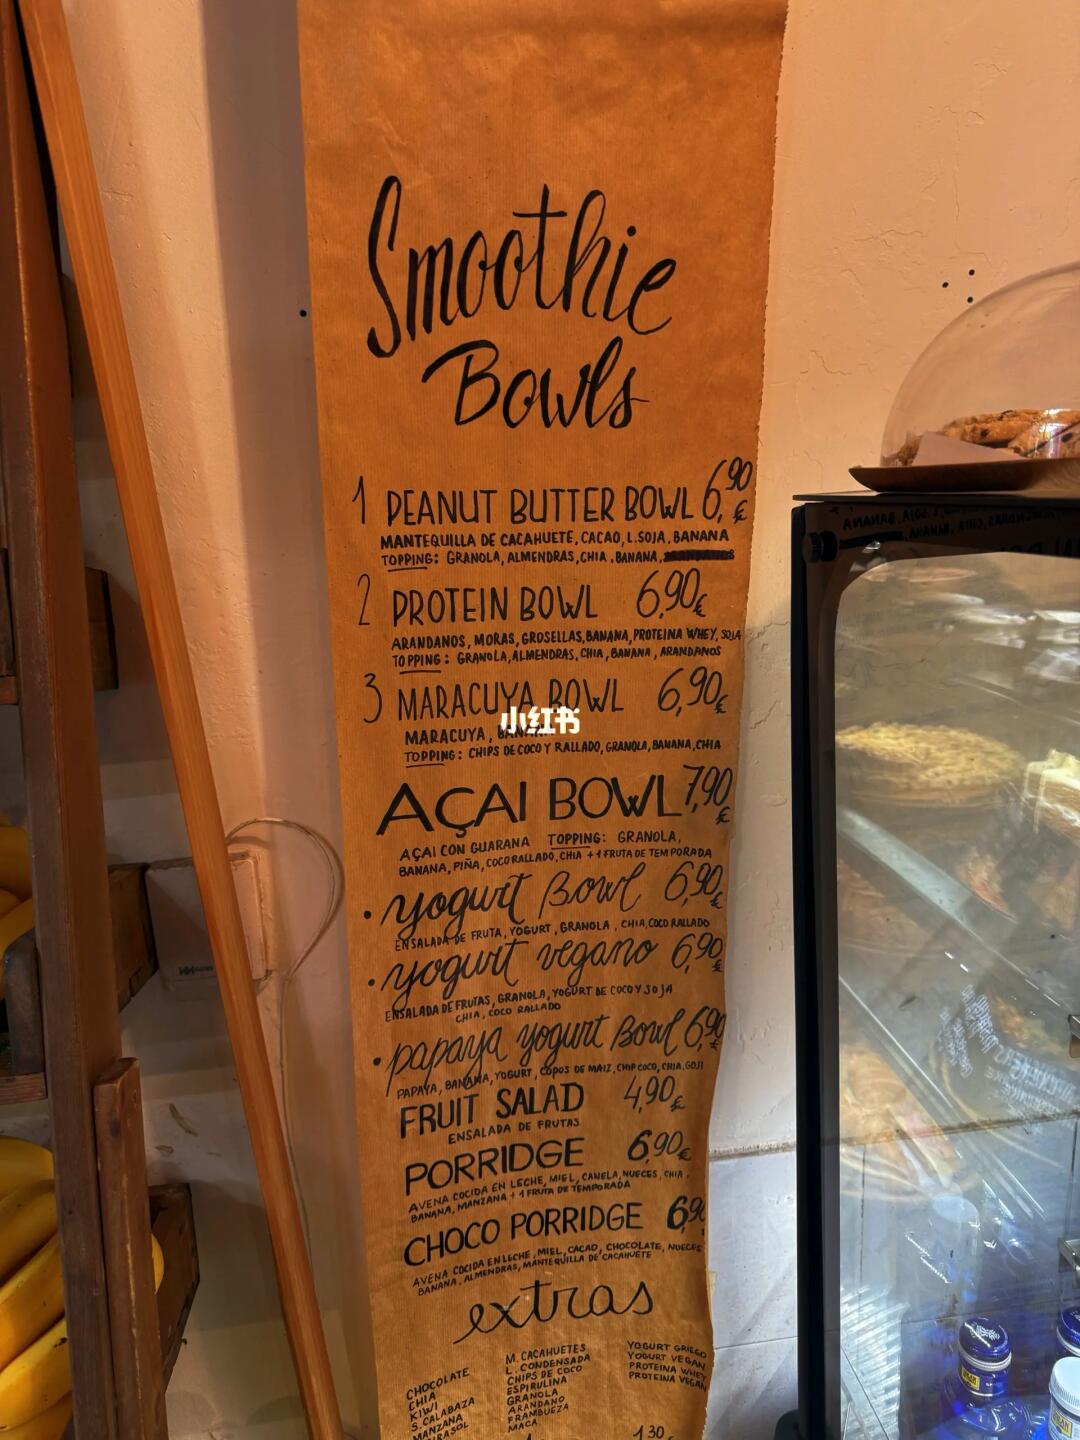 Smoothie
Bowls
1 PEANUT BUTTER BOWL 6,90€
MANTEQUILLA DE CACAHUETE, CACAO, L.SOJA, BANANA
TOPPING: GRANOLA, ALMENDRAS, CHIA, BANANA,
2 PROTEIN BOWL 6,90€
ARANDANOS, MORAS, GROSELLAS, BANANA, PROTEINA WHEY, SOJA
TOPPING: GRANOLA, ALMENDRAS, CHIA, BANANA, ARANDANOS
3 MARACUYA BOWL 6,90€
小红书
MARACUYA, BANANA
TOPPING: CHIPS DE COCO Y RALLADO, GRANOLA, BANANA, CHIA
AÇAI BOWL 7,90€
AÇAI CON GUARANA TOPPING: GRANOLA,
BANANA, PIÑA, COCO RALLADO, CHIA + 1 FRUTA DE TEMPORADA
• yogurt Bowl 6,90€
ENSALADA DE FRUTA, YOGURT, GRANOLA, CHIA, COCO RALLADO
• yogurt vegano 6,90€
ENSALADA DE FRUTAS, GRANOLA, YOGURT DE COCO Y SOJA
CHIA, COCO RALLADO
• papaya yogurt Bowl 6,90€
PAPAYA, BANANA, YOGURT, COPOS DE MAIZ, CHIP COCO, CHIA, GOJI
FRUIT SALAD 4,90€
ENSALADA DE FRUTAS
PORRIDGE 6,90€
AVENA COCIDA EN LECHE, MIEL, CANELA, NUECES, CHIA,
BANANA, MANZANA + 1 FRUTA DE TEMPORADA
CHOCO PORRIDGE 6,90
AVENA COCIDA EN LECHE, MIEL, CACAO, CHOCOLATE, NUECES
BANANA, ALMENDRAS, MANTEQUILLA DE CACAHUETE
extras
CHOCOLATE
CHIA
KIWI
S. CALABAZA
MANZANA
M. CACAHUETES
L. CONDENSADA
CHIPS DE COCO
ESPIRULINA
GRANOLA
ARANDANO
FRAMBUEZA
MACA
YOGURT GRIEGO
YOGURT VEGAN
PROTEINA WHEY
PROTEINA VEGAN
1,30